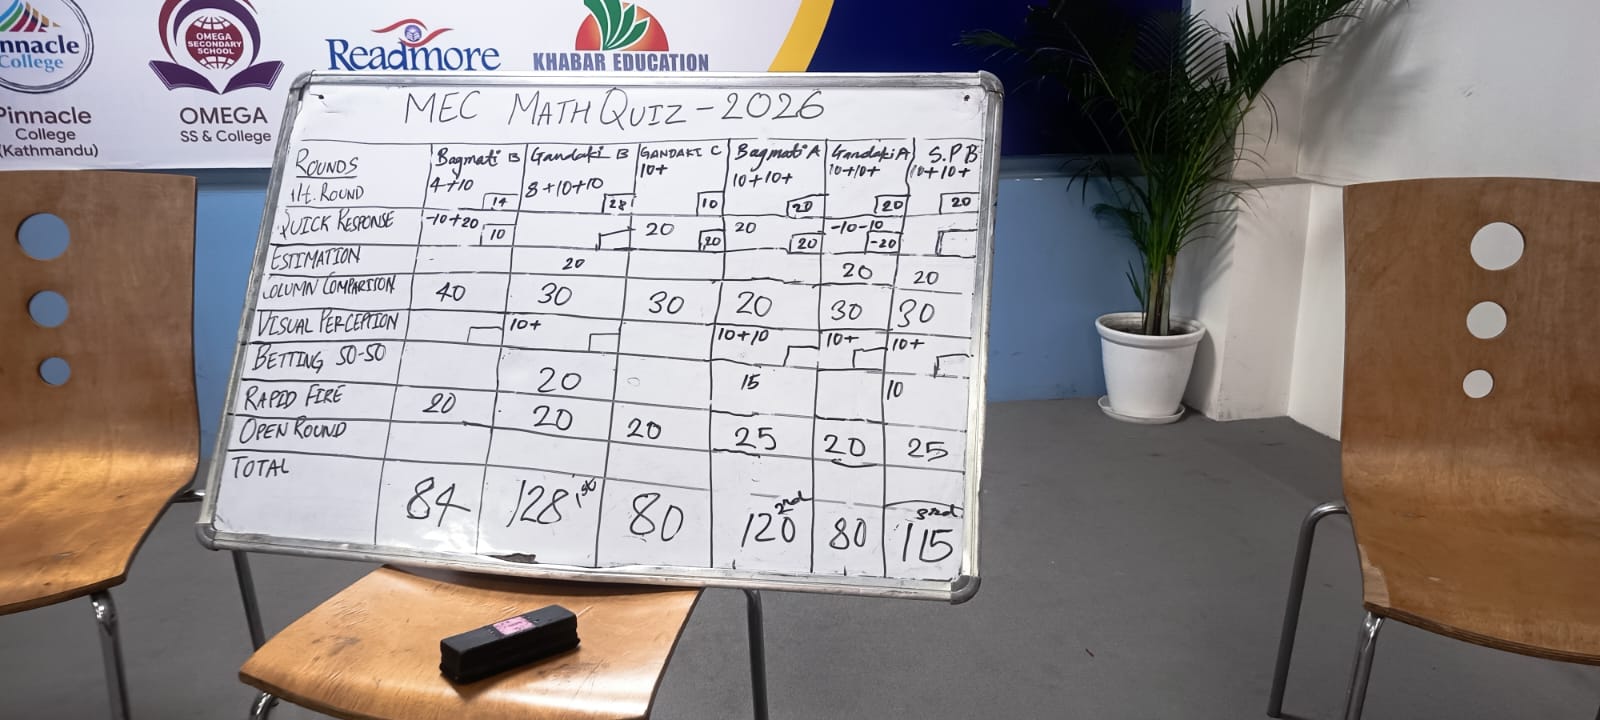 nnacle
College
Pinnacle
College
(Kathmandu)
OMEGA
SECONDARY
SCHOOL
OMEGA
SS & College
Readmore
KHABAR EDUCATION
MEC MATH QUIZ - 2026
ROUNDS Bagmati B Gandaki B GANDAKI C Bagmati A Gandaki A S.P B
Alt. ROUND 4+10 14 8+10+10 28 10+ 10 10+10+ 20 10+10+ 20 10+10+ 20
QUICK RESPONSE -10+20 10 20 20 20 20 -10-10 -20
ESTIMATION 20 20 20
COLUMN COMPARISON 40 30 30 20 30 30
VISUAL PERCEPTION 10+ 10+10 10+ 10+
BETTING 50-50 20 0 15 10
RAPID FIRE 20 20 20 25 20 25
OPEN ROUND
TOTAL 84 128 1st 80 120 2nd 80 115 3rd